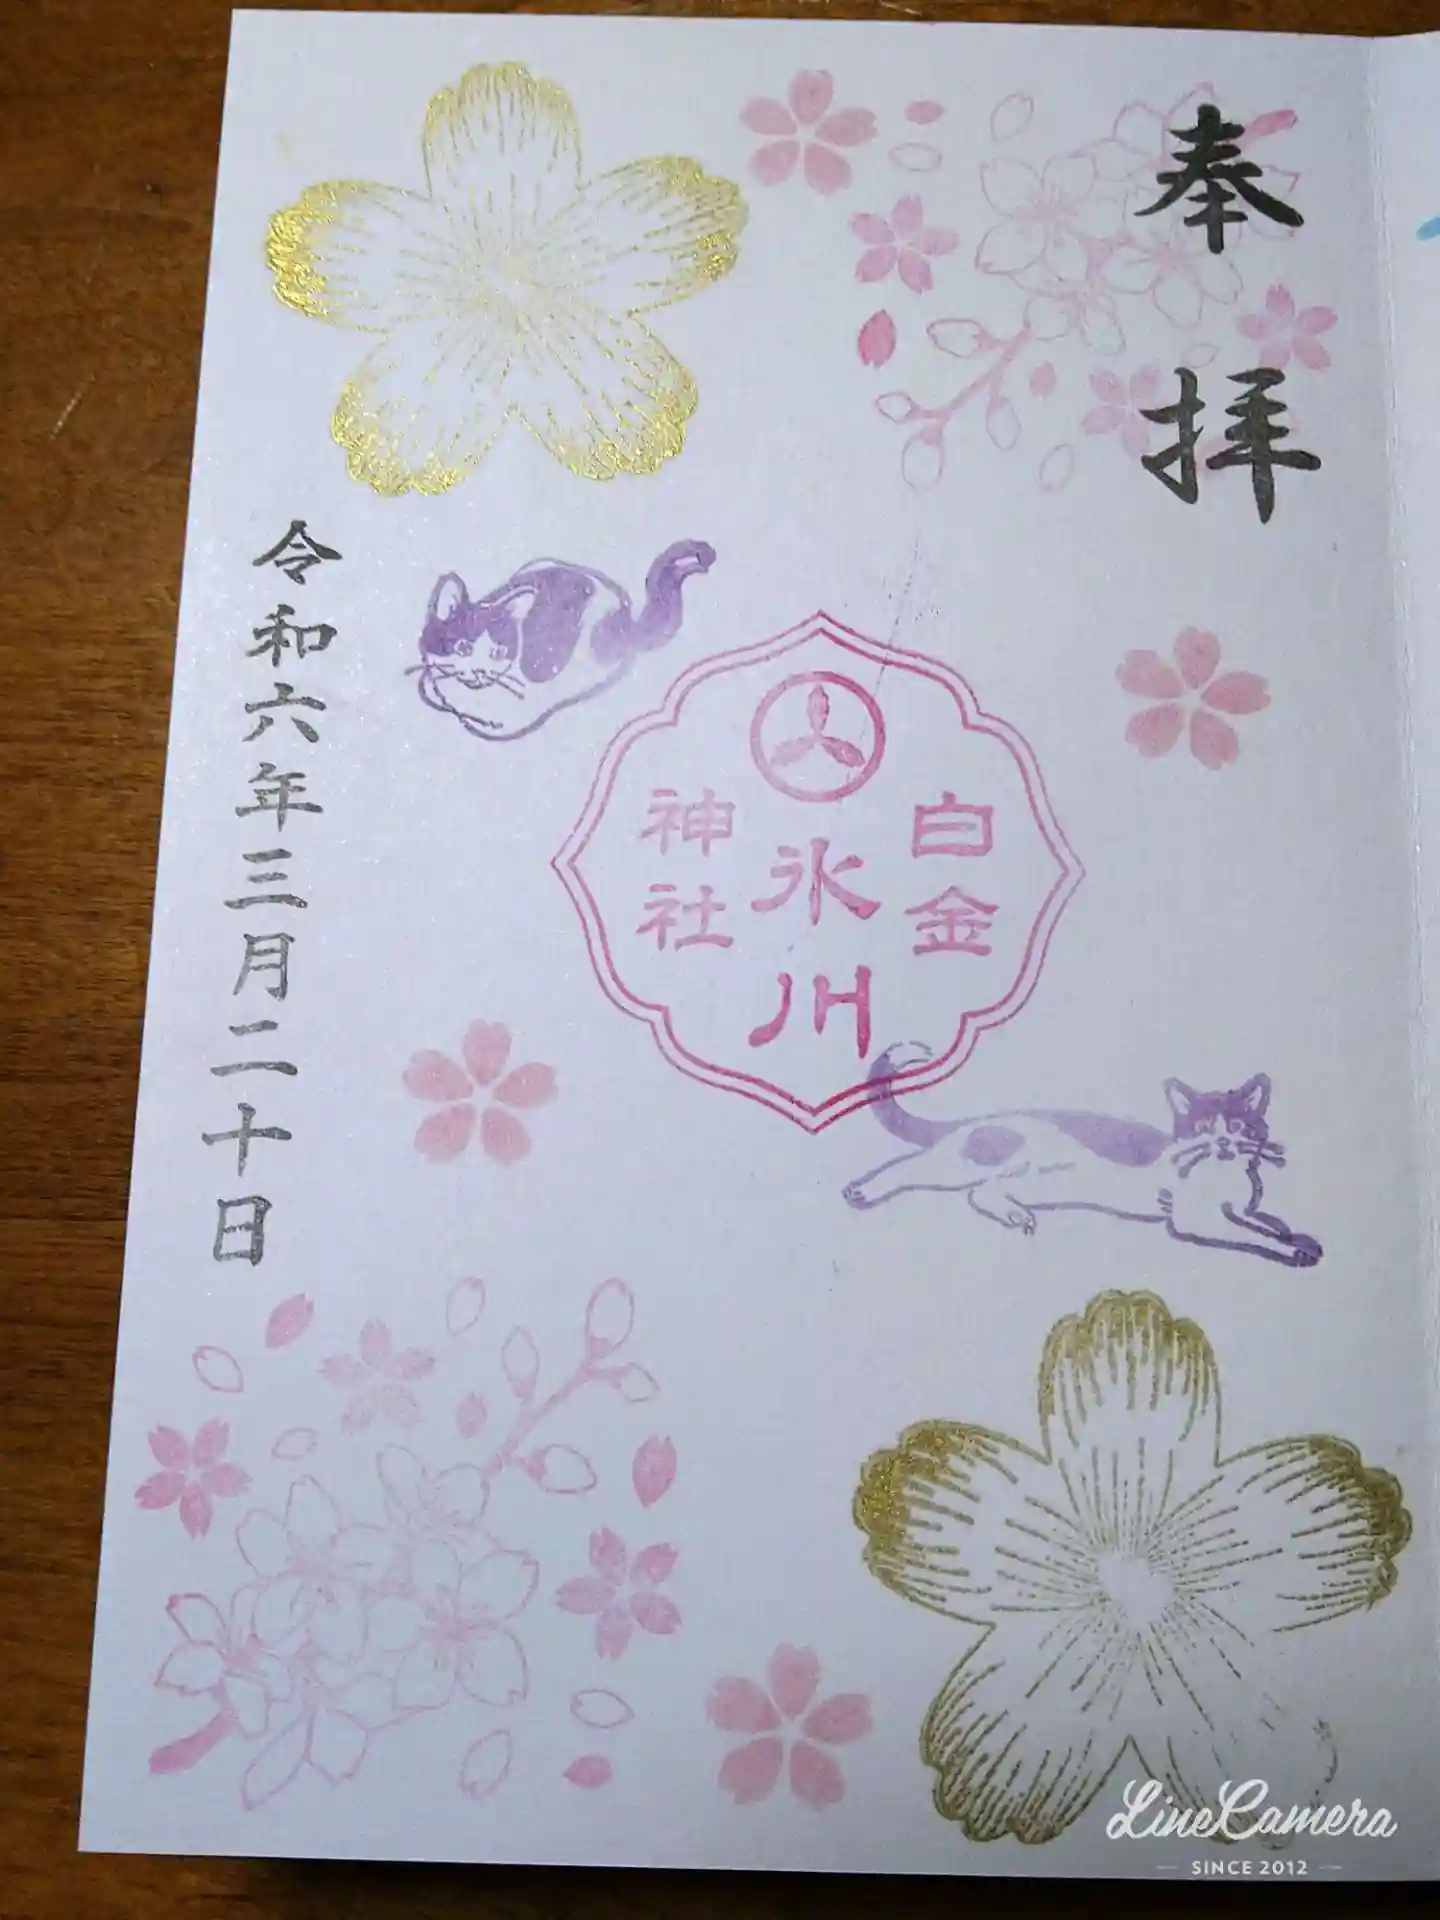 奉拝
白金
氷川
神社
令和六年三月二十日
LineCamera
SINCE 2012